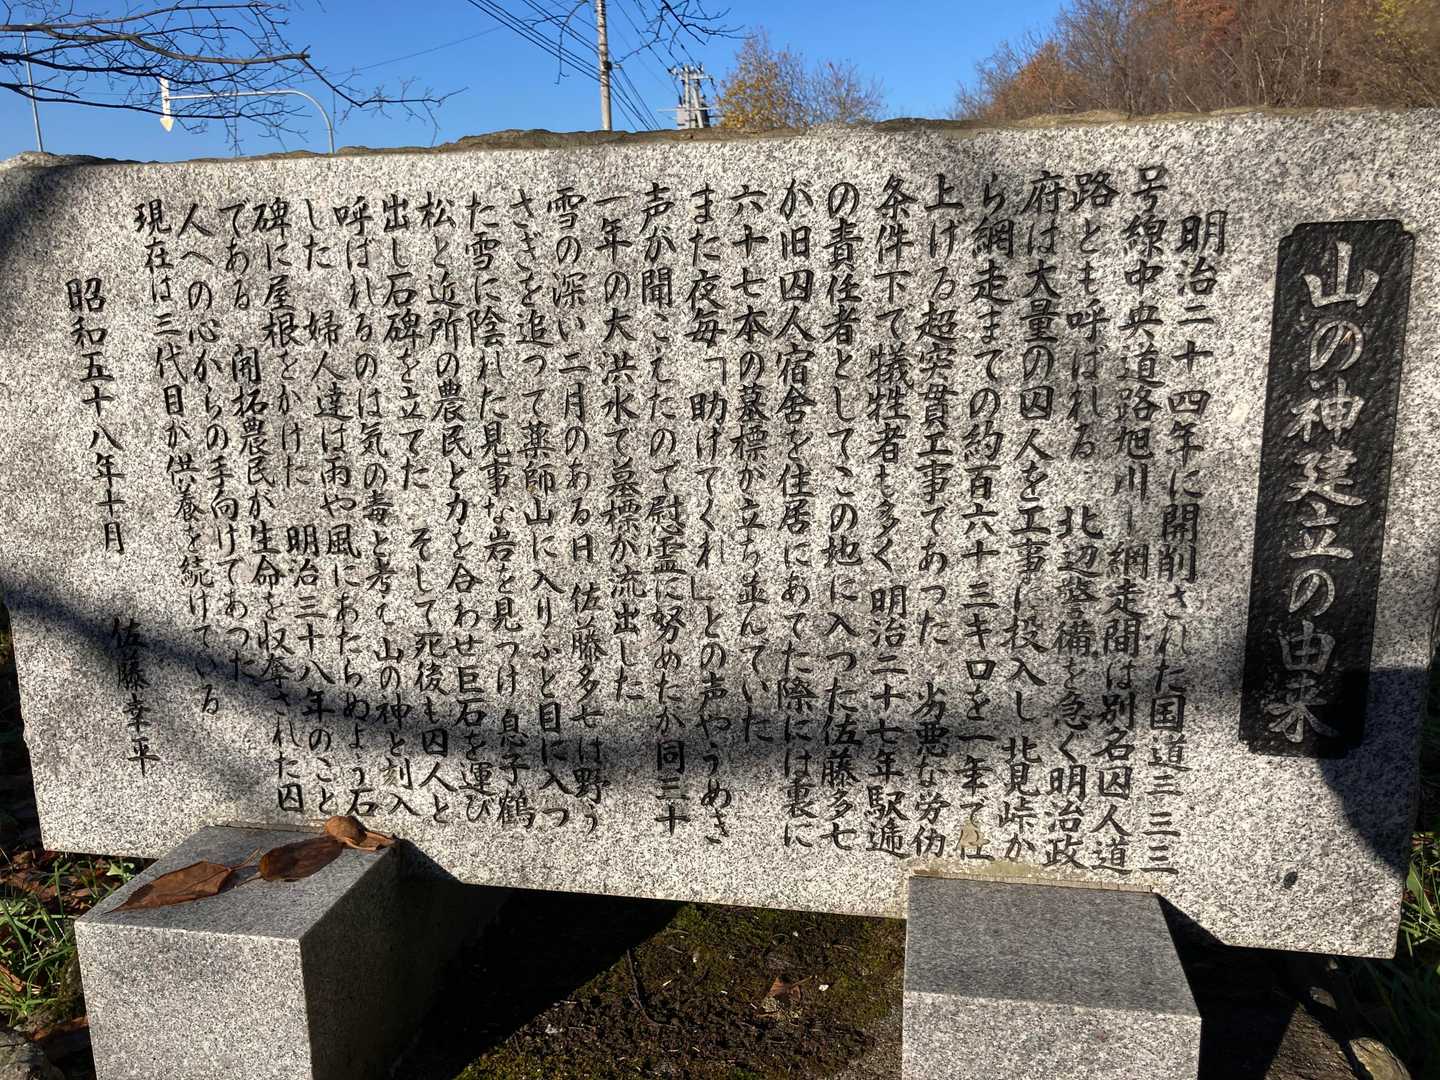 山の神建立の由来
明治二十四年に開削された国道三三三
号線中央道路旭川ー網走間は別名囚人道
路とも呼ばれる 北辺警備を急ぐ明治政
府は大量の囚人を工事に投入し北見峠か
ら網走まての約百六十三キロを一年で仕
上げる超突貫工事であった 劣悪な労伪
条件下て犠牲者も多く 明治二十七年駅逓
の責任者としてこの地に入った佐藤多七
が旧囚人宿舎を住居にあてた際には裏に
六十七本の墓標が立ち並んていた
また夜毎「助けてくれ」との声やうめき
声が聞こえたので慰霊に努めたか同三十
一年の大洪水て墓標が流出した
雪の深い二月のある日 佐藤多七は野う
さぎを追って薬師山に入りふと目に入っ
た雪に陰れた見事な岩を見つけ 息子鶴
松と近所の農民と力を合わせ巨石を運び
出し石碑を立てた そして死後も囚人と
呼ばれるのは気の毒と考て 山の神と刻入
した 婦人達は雨や風にあたらぬよう石
碑に屋根をかけた 明治三十八年のこと
である 開拓農民が生命を収奪された囚
人への心からの手向けてあった
現在は三代目が供養を続けている
昭和五十八年十月 佐藤幸平